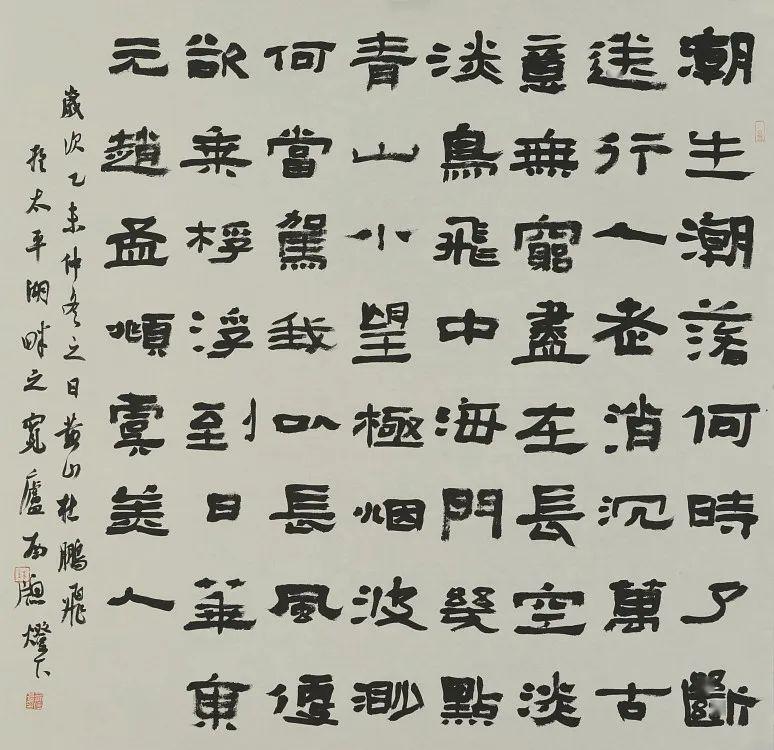 潮生潮落何時了斷
送行人老消沉萬古
意無窮盡在長空淡
淡鳥飛中海門幾點
青山小望極烟波渺
何當駕我㕥長風便
欲乘桴浮到日華東
元趙孟頫虞美人
歲次乙未仲冬之日黄山杜鵬飛
於太平湖畔之寬廬南牕燈下